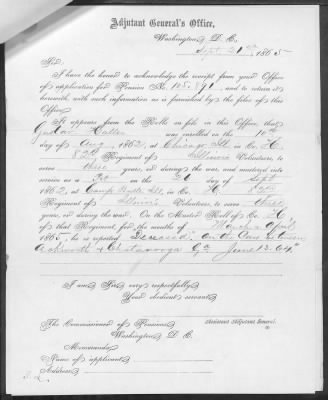 Adjutant General's Office,
Washington, D. C.
Sept. 21st, 1865
Sir:
I have the honor to acknowledge the receipt from your Office
of application for Pension No. 105.891, and to return it
herewith, with such information as is furnished by the files of this
Office.
It appears from the Rolls on file in this Office, that
Gustav was enrolled on the
day of Aug, 1862, at Chicago Ill, in Co. H,
82d Regiment of Illinois Volunteers, to
serve three years, or during the war, and mustered into
service as a on the day of Sept,
1862, at Camp Butler Ill, in Co. H,
Regiment of Illinois Volunteers, to serve three
years, or during the war. On the Muster Roll of Co. H
of that Regiment, for the months of March & April,
1865, he is reported "Deceased" on the Cars between
Ackworth & Chattanooga Ga June 13. 64"
I am Sir, very respectfully,
Your obedient servant,
Assistant Adjutant General.
The Commissioner of Pensions,
Washington, D. C.
Memoranda:
Name of applicant,
Address,